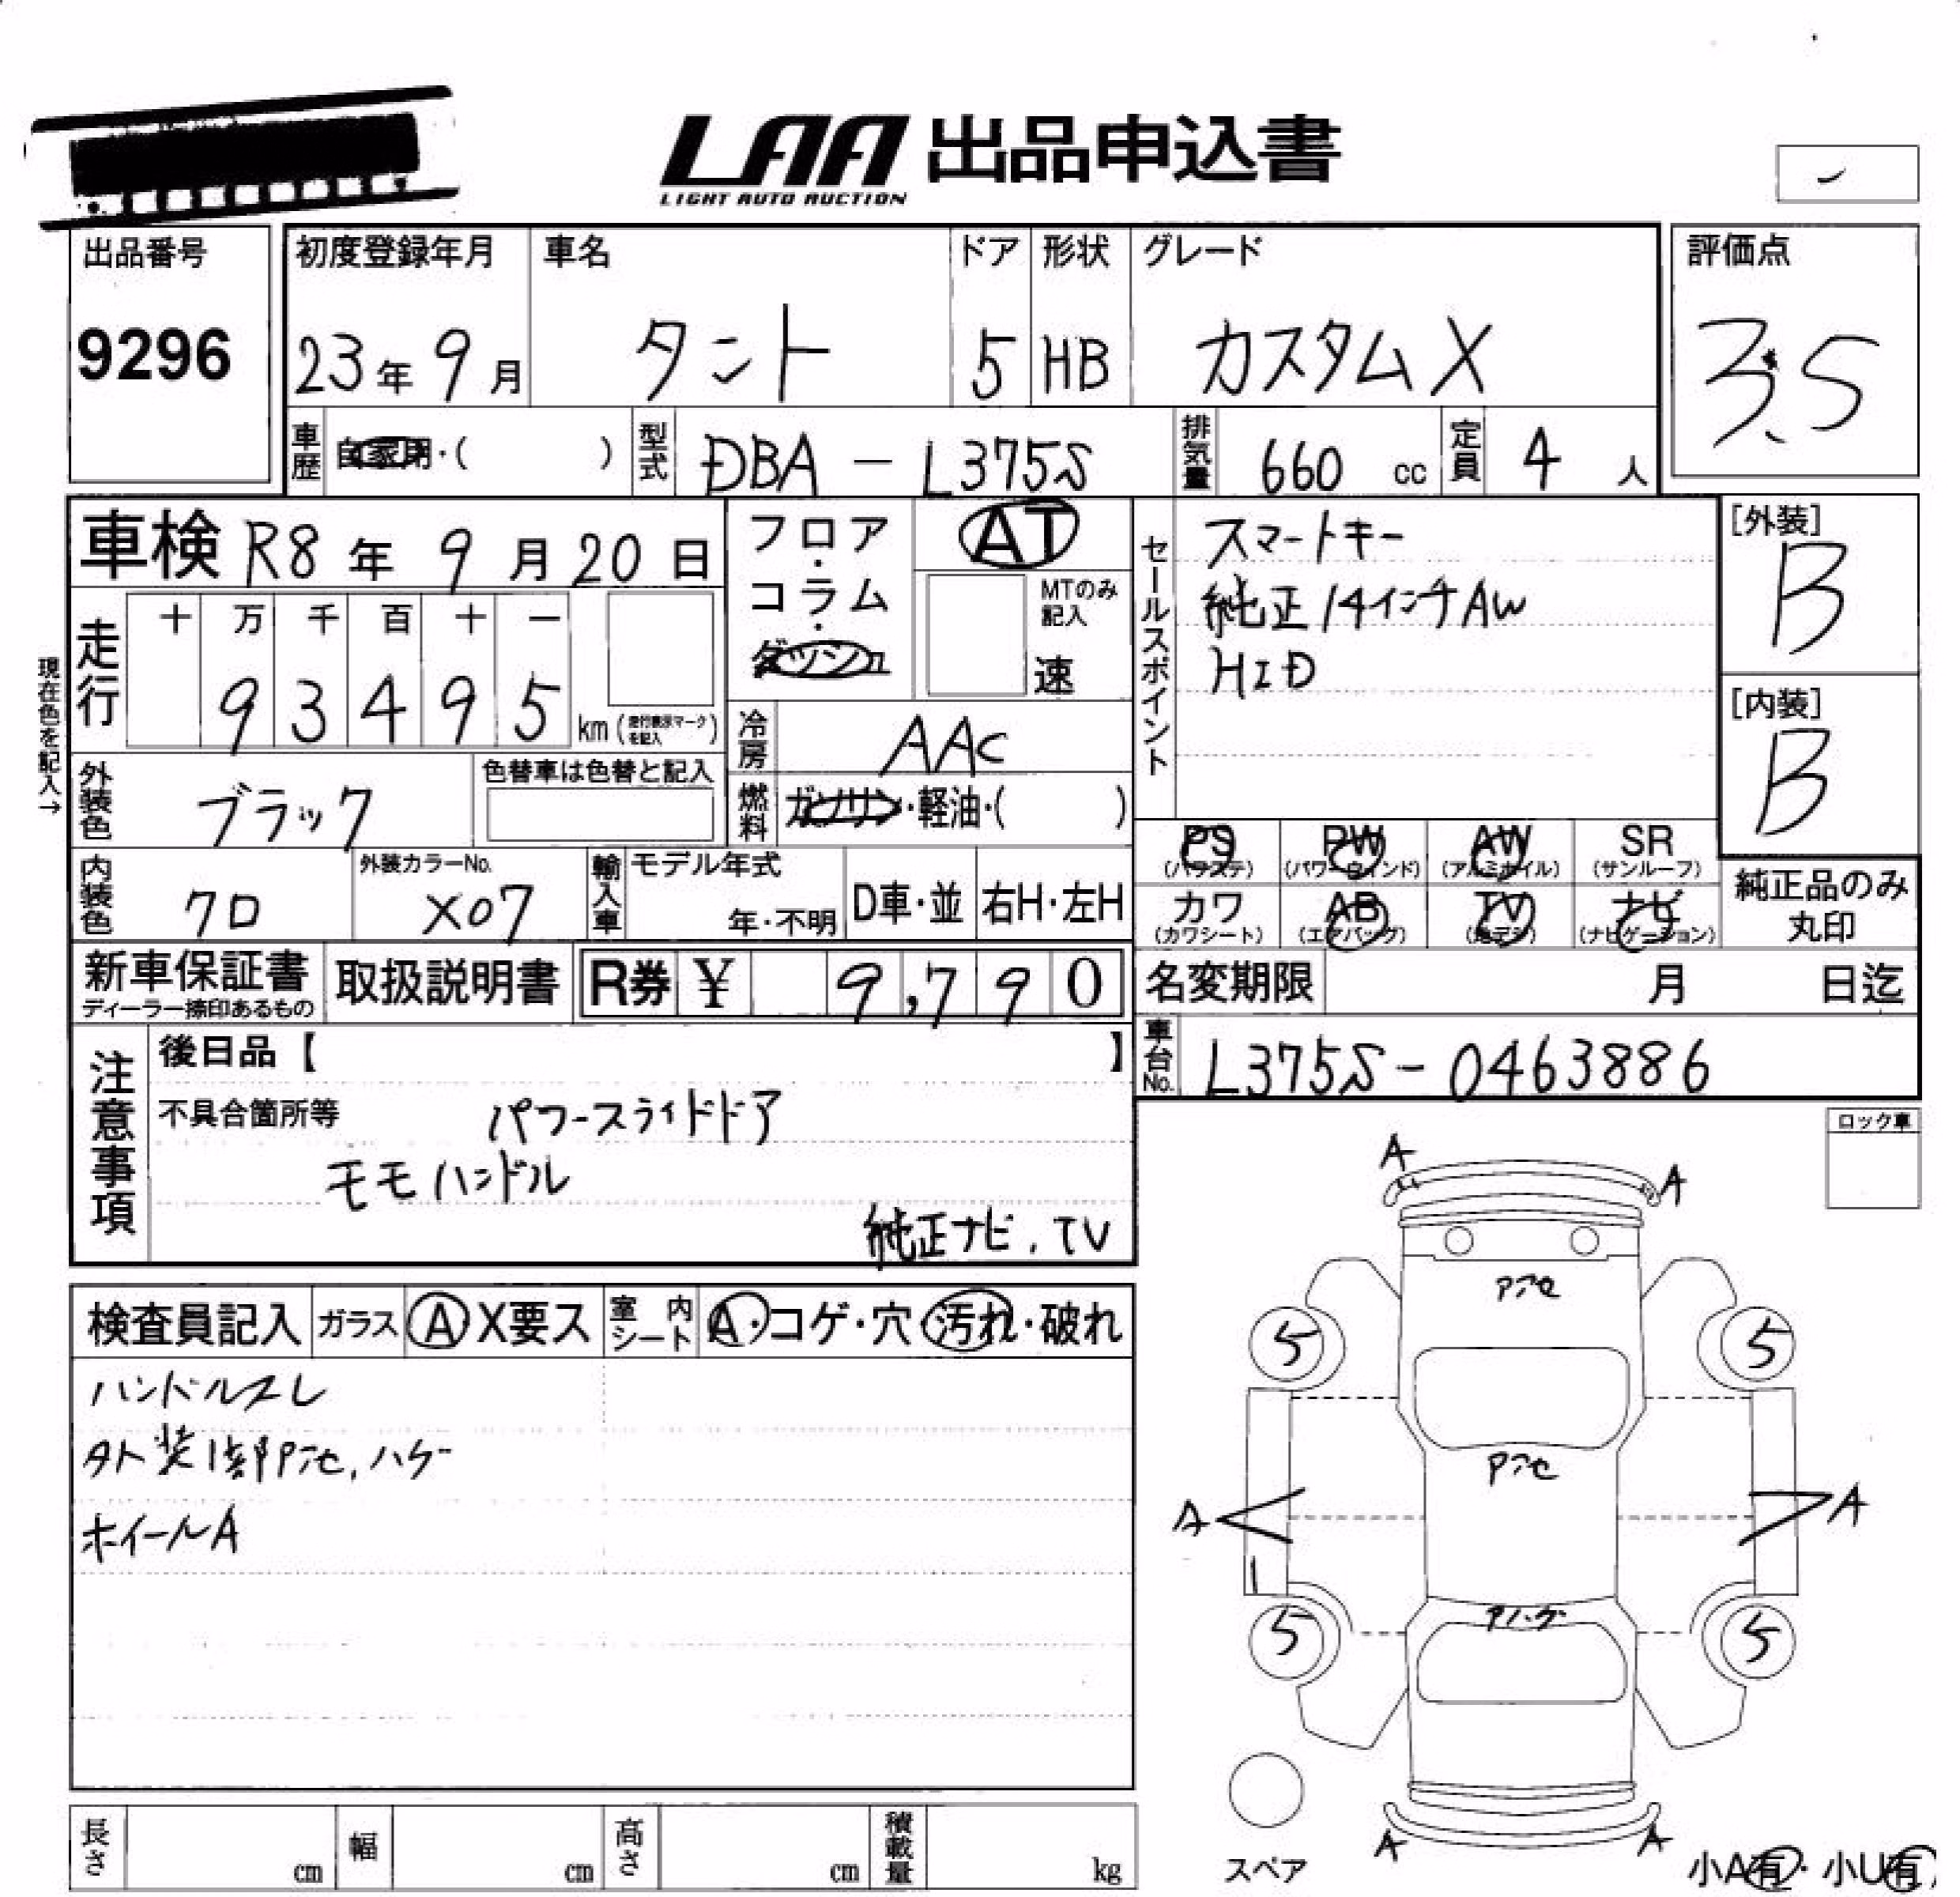 LAA 出品申込書
LIGHT AUTO AUCTION
出品番号
9296
初度登録年月
23年 9月
車名
タント
ドア
5
形状
HB
グレード
カスタムX
評価点
3.5
車歴 自家用・( )
型式 DBA - L375S
排気量 660 cc
定員 4 人
車検 R8年 9月20日
フロア・コラム・ダッシュ
AT
MTのみ記入
速
セールスポイント
スマートキー
純正14インチAW
HID
[外装]
B
[内装]
B
現在色を記入→
走行
十 万 千 百 十 一
9 3 4 9 5 km (走行表示マークを記入)
冷房 AAC
外装色 ブラック
色替車は色替と記入
燃料 ガソリン・軽油・( )
PS (パワステ)
PW (パワーウインド)
AW (アルミホイル)
SR (サンルーフ)
カワ (カワシート)
AB (エアバッグ)
TV (地デジ)
ナビ (ナビゲーション)
純正品のみ丸印
内装色 クロ
外装カラーNo. X07
輸入車 モデル年式
年・不明
D車・並
右H・左H
新車保証書
ディーラー捺印あるもの
取扱説明書
R券 ¥ 9,790
名変期限 月 日迄
車台No. L375S-0463886
注意事項
後日品【 】
不具合箇所等 パワースライドドア
モモハンドル
純正ナビ、TV
ロック車
検査員記入
ガラス A X要ス
室内シート A・コゲ・穴・汚れ・破れ
ハンドルスレ
外装1部Pアセ、ハゲ
ホイールA
A
A
Pアセ
5
5
Pアセ
A
A
5
5
A
A
スペア
小A有・小U有
長さ cm
幅 cm
高さ cm
積載量 kg